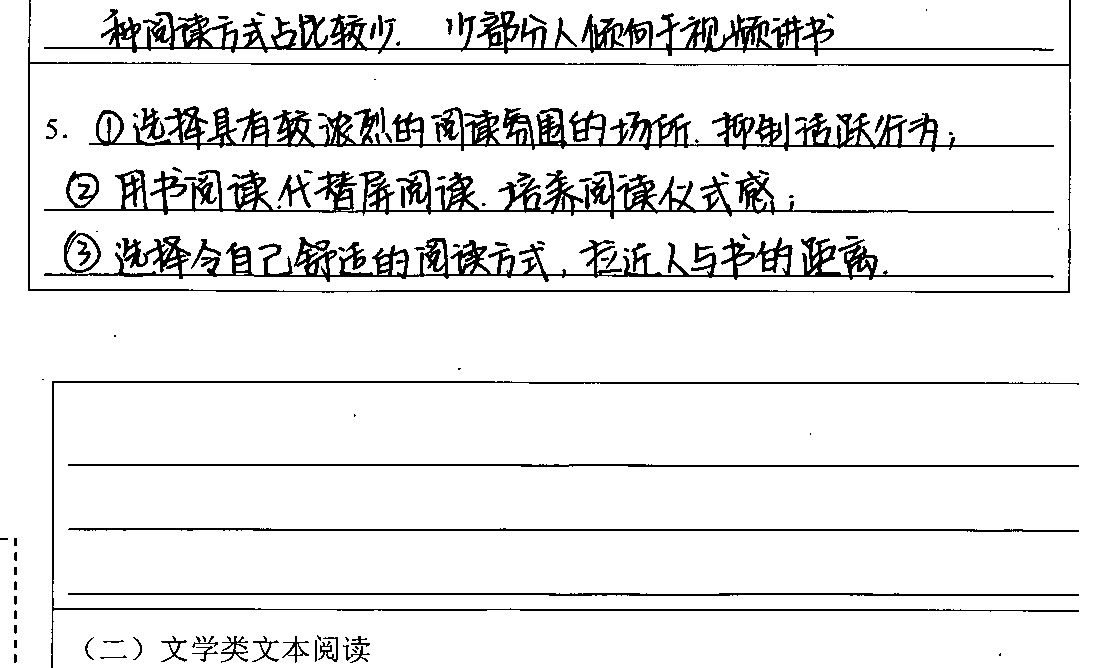 种阅读方式占比较少. 少部分人倾向于视频讲书
5. ①选择具有较浓烈的阅读氛围的场所. 抑制活跃行为;
② 用书阅读代替屏阅读. 培养阅读仪式感;
③ 选择令自己舒适的阅读方式, 拉近人与书的距离.
（二）文学类文本阅读